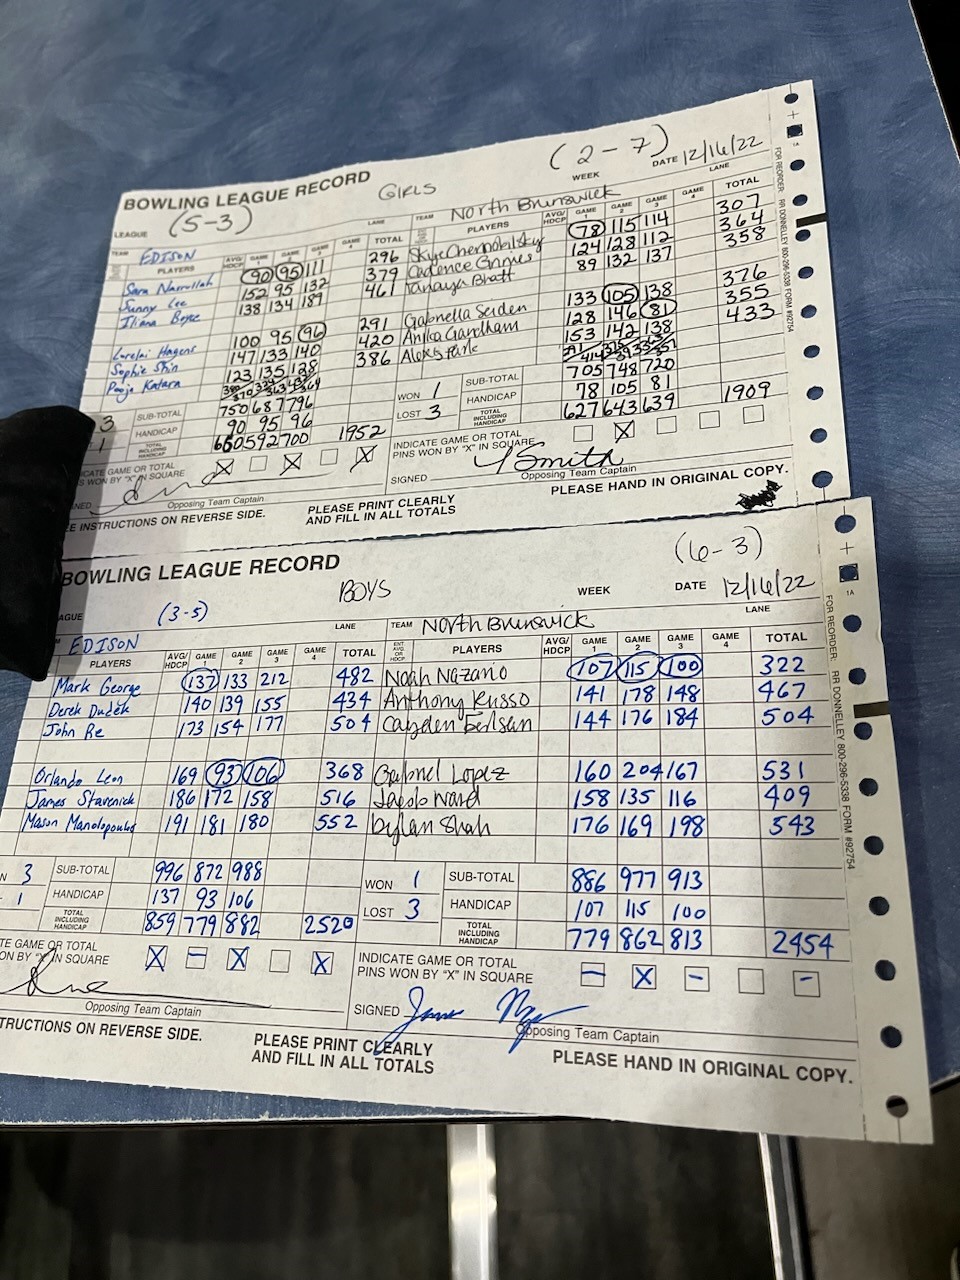 (2-7)
BOWLING LEAGUE RECORD GIRLS WEEK DATE 12/16/22
LEAGUE (5-3) LANE TEAM North Brunswick LANE
TEAM EDISON
PLAYERS AVG/HDCP GAME 1 GAME 2 GAME 3 GAME 4 TOTAL PLAYERS AVG/HDCP GAME 1 GAME 2 GAME 3 GAME 4 TOTAL
Sara Nasrullah 90 95 111 296 Skye Chernobilsky 78 115 114 307
Sunny Lee 152 95 132 379 Cadence 124 128 112 364
Iliana 138 134 189 461 Bhatt 89 132 137 358
Lorelai Hagens 100 95 96 291 Gabriella Seiden 133 105 138 376
Sophie Shin 147 133 140 420 Anika Gardham 128 146 81 355
Pooja Katara 123 135 128 386 Alexis 153 142 138 433
3 SUB-TOTAL 750 687 796 WON 1 SUB-TOTAL 705 748 720
1 HANDICAP 90 95 96 LOST 3 HANDICAP 78 105 81
TOTAL INCLUDING HANDICAP 660 592 700 1952 TOTAL INCLUDING HANDICAP 627 643 639 1909
ICATE GAME OR TOTAL
S WON BY "X" IN SQUARE X X X INDICATE GAME OR TOTAL
PINS WON BY "X" IN SQUARE X
NED SIGNED Smith
Opposing Team Captain Opposing Team Captain
EE INSTRUCTIONS ON REVERSE SIDE. PLEASE PRINT CLEARLY
AND FILL IN ALL TOTALS PLEASE HAND IN ORIGINAL COPY.
FOR REORDER: RR DONNELLEY 800-296-5338 FORM #92754
1A
(6-3)
BOWLING LEAGUE RECORD BOYS WEEK DATE 12/16/22
AGUE (3-5) LANE TEAM North Brunswick LANE
EDISON
PLAYERS AVG/HDCP GAME 1 GAME 2 GAME 3 GAME 4 TOTAL ENT. AVG. OR HDCP PLAYERS AVG/HDCP GAME 1 GAME 2 GAME 3 GAME 4 TOTAL
Mark George 137 133 212 482 Noah Nazario 107 115 100 322
Derek Dudek 140 139 155 434 Anthony Russo 141 178 148 467
John Re 173 154 177 504 Cayden 144 176 184 504
Orlando Leon 169 93 106 368 Gabriel Lopez 160 204 167 531
James Stavenick 186 172 158 516 Jacob Ward 158 135 116 409
Mason Manolopoulos 191 181 180 552 Dylan Shah 176 169 198 543
N 3 SUB-TOTAL 996 872 988 WON 1 SUB-TOTAL 886 977 913
1 HANDICAP 137 93 106 LOST 3 HANDICAP 107 115 100
TOTAL INCLUDING HANDICAP 859 779 882 2520 TOTAL INCLUDING HANDICAP 779 862 813 2454
TE GAME OR TOTAL
ON BY "X" IN SQUARE X - X X INDICATE GAME OR TOTAL
PINS WON BY "X" IN SQUARE - X - -
SIGNED James
Opposing Team Captain Opposing Team Captain
TRUCTIONS ON REVERSE SIDE. PLEASE PRINT CLEARLY
AND FILL IN ALL TOTALS PLEASE HAND IN ORIGINAL COPY.
FOR REORDER: RR DONNELLEY 800-296-5338 FORM #92754
1A